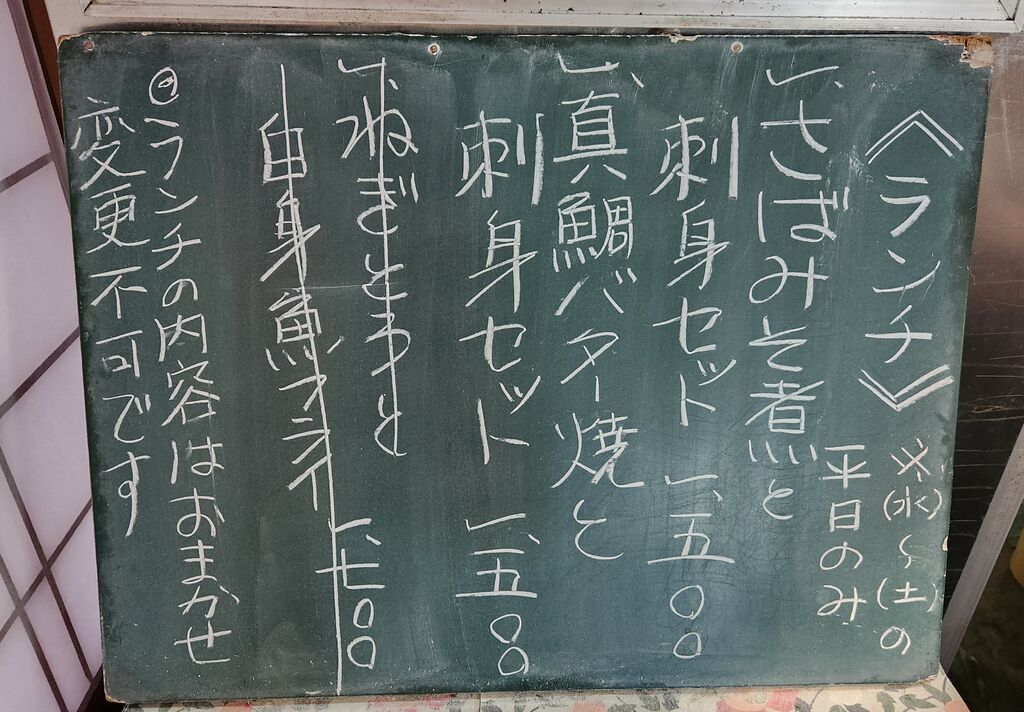 《ランチ》
※(水)～(土)の
平日のみ
一、さばみそ煮と
刺身セット 一、五〇〇
一、真鯛バター焼と
刺身セット 一、五〇〇
一、ねぎとろと
白身魚フライ 一、七〇〇
@ランチの内容はおまかせ
変更不可です